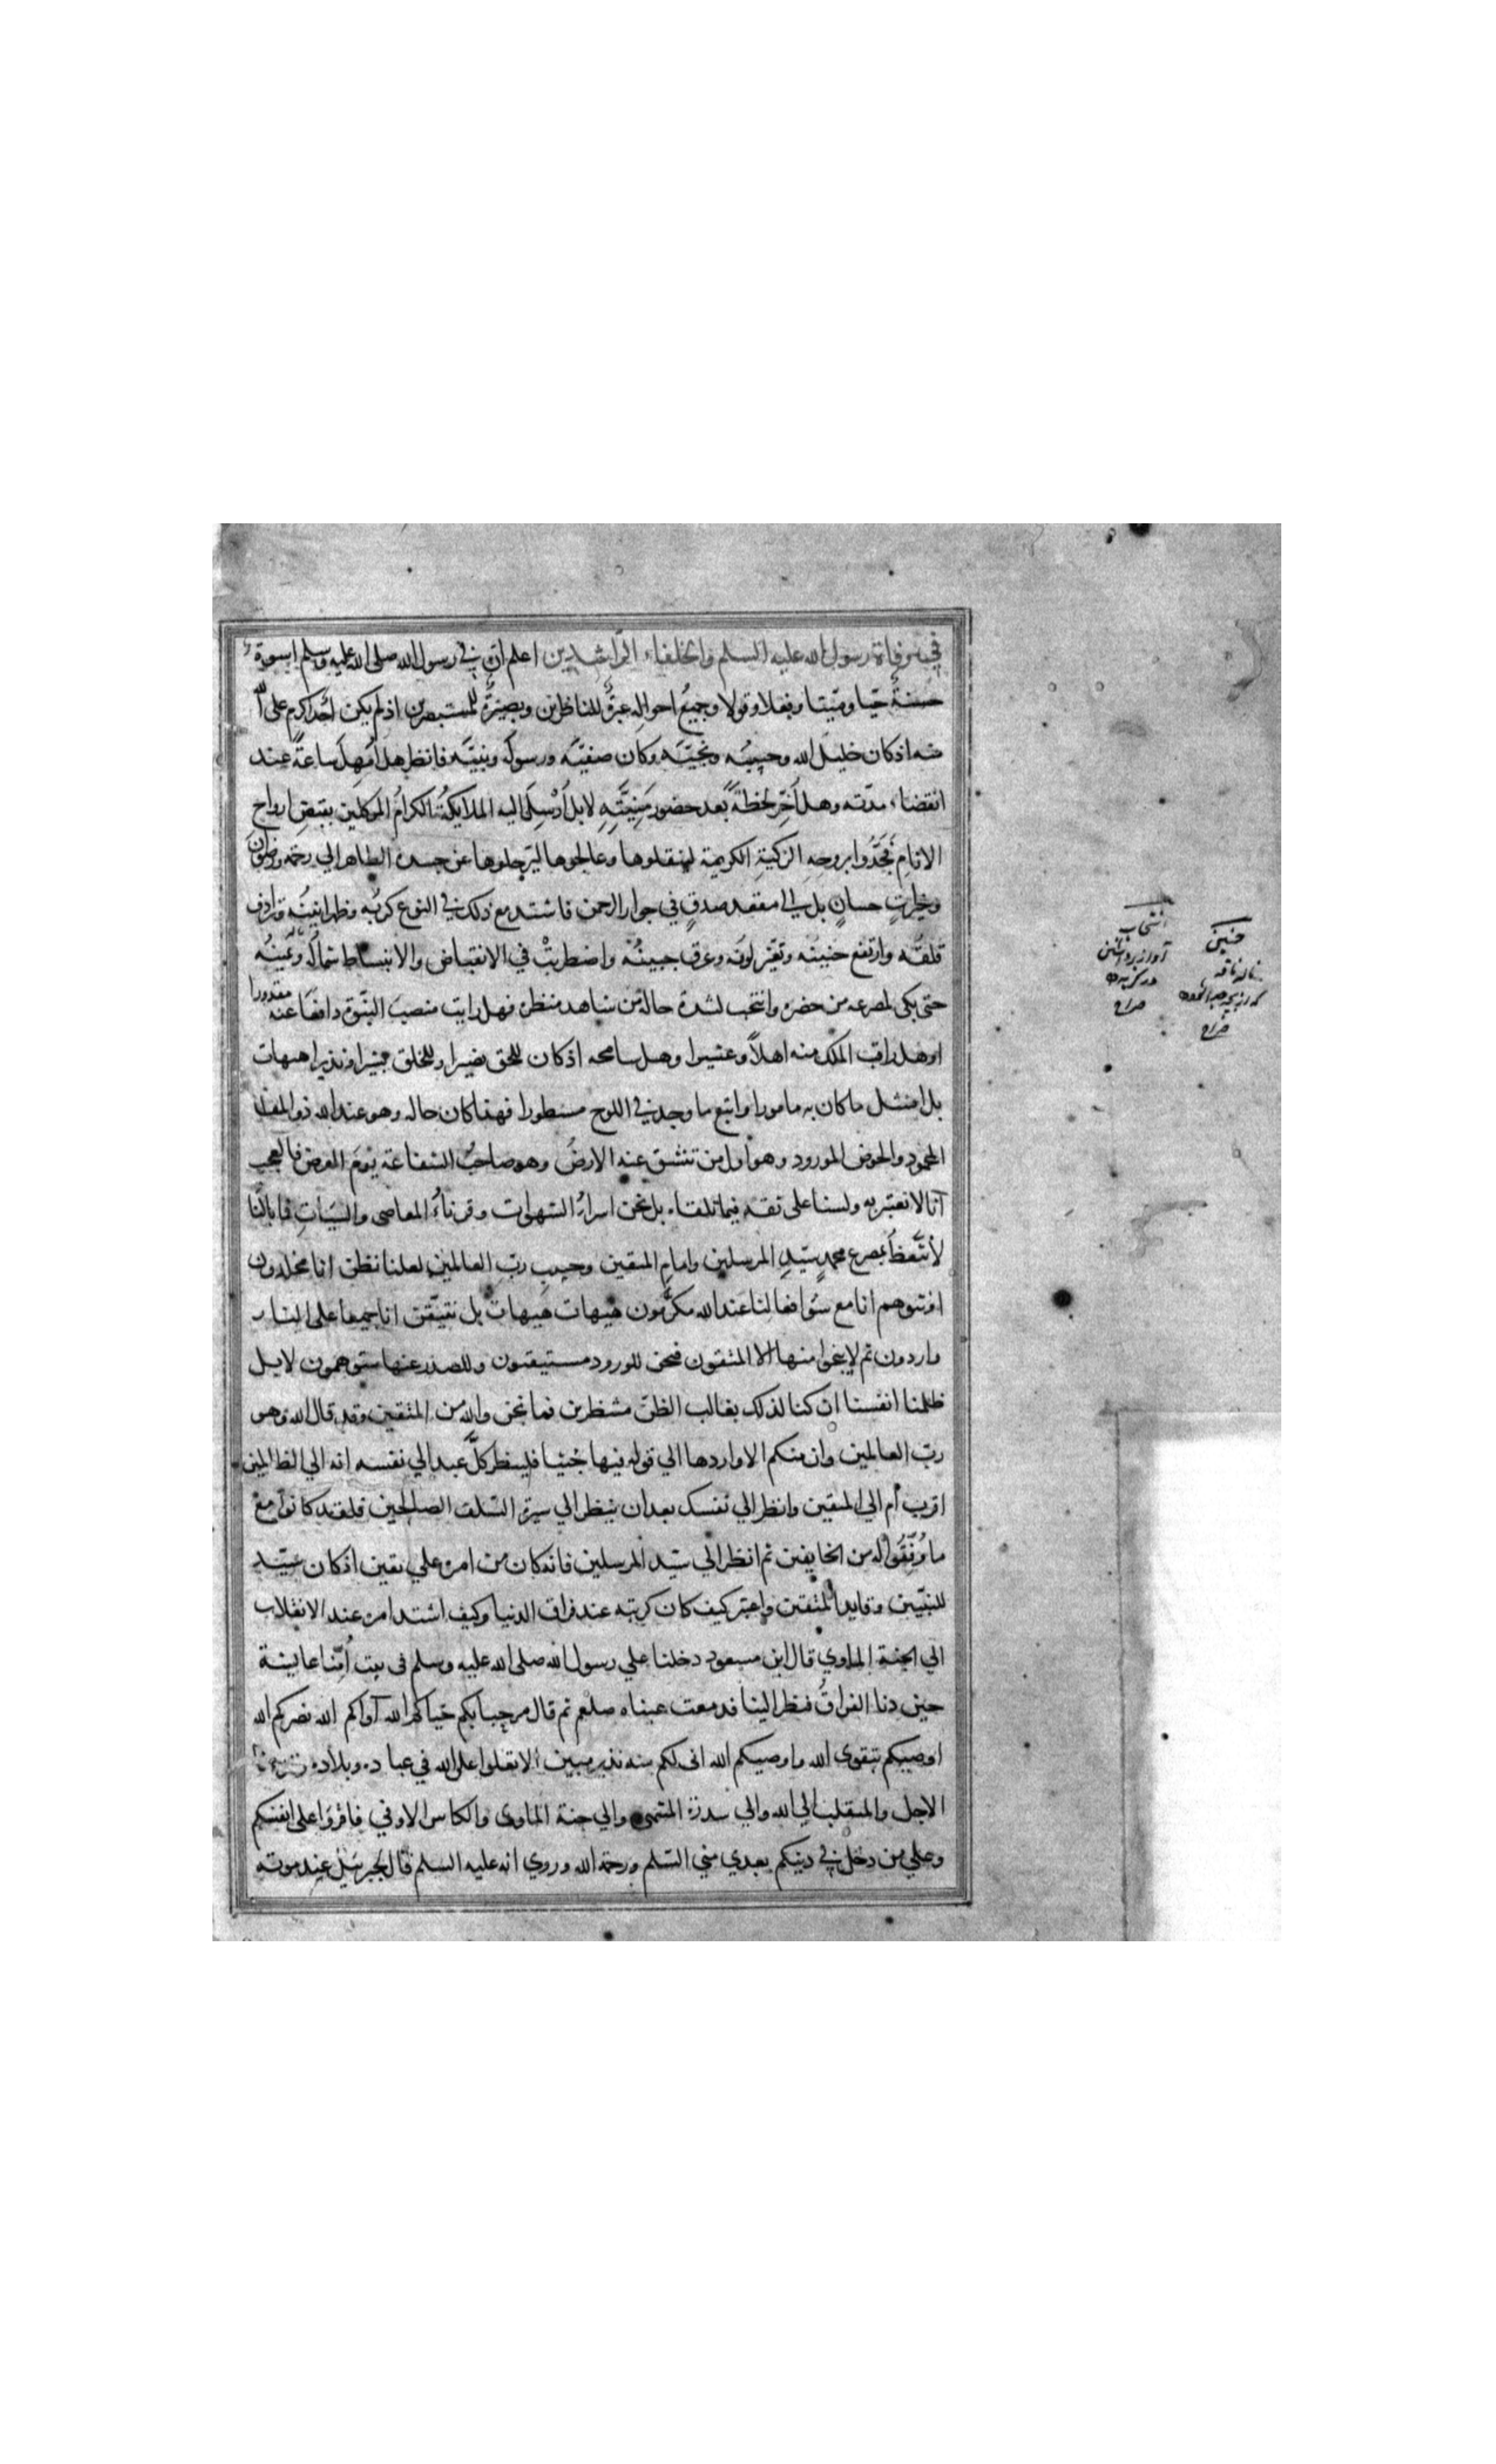 في وفاة رسول الله عليه السلم والخلفاء الراشدين اعلم ان في رسول الله صلى الله عليه وسلم اسوة
حسنة حيا وميتا وفعلا وقولا وجميع احواله عبرة للناظرين وبصيرة للمستبصرين اذ لم يكن احد اكرم على الله
منه اذ كان خليل الله وحبيبه ونجيه وكان صفيه ورسوله ونبيه فانظر هل امهله ساعة عند
انقضاء مدته وهل اخر لحظة بعد حضور منيته لا بل ارسل اليه الملايكة الكرام الموكلين بقبض ارواح
الانام فجدوا بروحه الزكية الكريمة لينقلوها وعالجوها ليرحلوها عن جسده الطاهر الي رحمة ورضوان
وخيرات حسان بل الي مقعد صدق في جوار الرحمن فاشتد مع ذلك في النزع كربه وظهر انينه وترادف
قلقه وارتفع حنينه وتغير لونه وعرق جبينه واضطربت في الانقباض والانبساط شماله ويمينه
حتى بكى لمصرعه من حضره وانتحب لشدة حاله من شاهد منظره فهل رايت منصب النبوة دافعا عنه مقدورا
او هل راقب الملك منه اهلا وعشيرا وهل سامحه اذ كان للحق نصيرا وللخلق بشيرا ونذيرا هيهات
بل امتثل ما كان به مامورا واتبع ما وجد في اللوح مسطورا فهذا كان حاله وهو عند الله ذو المقام
المحمود والحوض المورود وهو اول من تنشق عنه الارض وهو صاحب الشفاعة يوم العرض فالعجب
انا لا نعتبر به ولسنا على ثقة فيما نلقاه بل نحن اسراء الشهوات وقرناء المعاصي والسيات فما بالنا
لا نتعظ بمصرع محمد سيد المرسلين وامام المتقين وحبيب رب العالمين لعلنا نظن اننا مخلدون
او نتوهم انا مع سوء افعالنا عند الله مكرمون هيهات هيهات بل نتيقن انا جميعا على النار
واردون ثم لا ينجوا منها الا المتقون فنحن للورود مستيقنون وللصدر عنها متوهمون لا بل
ظلمنا انفسنا ان كنا لذلك بغالب الظن منتظرين فما نحن والله من المتقين وقد قال الله وهو
رب العالمين وان منكم الا واردها الي قوله فيها جثيا فلينظر كل عبد الي نفسه انه الي الظالمين
اقرب ام الي المتقين وانظر الي نفسك بعد ان ينظر الي سيرة السلف الصالحين فلقد كانوا مع
ما وفقوا له من الخايفين ثم انظر الي سيد المرسلين فانه كان من امره علي يقين اذ كان سيد
النبيين وقايد المتقين واعتبر كيف كان كربه عند فراق الدنيا وكيف اشتد امره عند الانقلاب
الي الجنة الماوي قال ابن مسعود دخلنا علي رسول الله صلى الله عليه وسلم في بيت امنا عايشة
حين دنا الفراق فنظر الينا فدمعت عيناه صلعم ثم قال مرحبا بكم حياكم الله آواكم الله نصركم الله
اوصيكم بتقوى الله واوصيكم الله اني لكم منه نذير مبين الا تعلوا علي الله في عباده وبلاده
الاجل والمنقلب الي الله والي سدرة المنتهى والي جنة الماوى والكاس الاوفي فاقروا على انفسكم
وعلي من دخل في دينكم بعدي مني السلم ورحمة الله وروي انه عليه السلم قال لجبرئيل عند موته
حنين
ناله ناقه
صراح
انتحاب
آواز برداشتن
در گریه
صراح